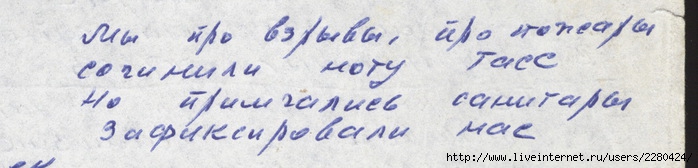 Мы про взрывы, про пожары
сочинили ноту ТАСС
Но примчались санитары
Зафиксировали нас
http://www.liveinternet.ru/users/2280424/